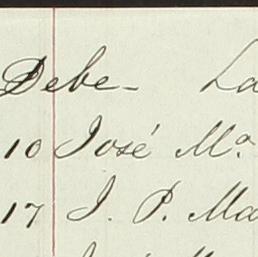 Debe- La
10 José Mª
17 J. P. Ma